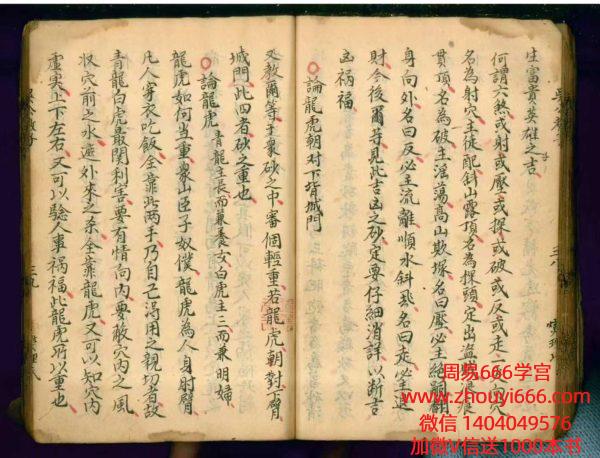 生富貴英雄之吉
何謂六煞或射或壓或探或破或反或走一尖向穴
名為射穴主徒配斜山露頂名為探頭定出盜
貫頂名為破主淫蕩高山欺塚名曰壓必主絕嗣翻
身向外名曰反必主流離順水斜飛名曰走必主退
財今後爾等見此吉凶之砂定要仔細消詳以断吉
凶禍福
論龍虎朝对下臂城門
又教爾等于衆砂之中審個輕重若龍虎朝對下臂
城門此四者砂之重也
論龍虎 青龍主長而兼養女白虎主三而兼明婦
龍虎如何当重衆山臣子奴僕龍虎為人身肘臂
凡人穿衣吃飯全靠此兩手乃自己得用之親切者故
青龍白虎最関利害要有情向内要蔽穴内之風
収穴前之水遮外來之煞全靠龍虎又可以知穴内
虚实上下左右又可以驗人事禍福此龍虎所以重也
周易666学宫
www.zhouyi666.com
微信 1404049576
加微V信送1000本书